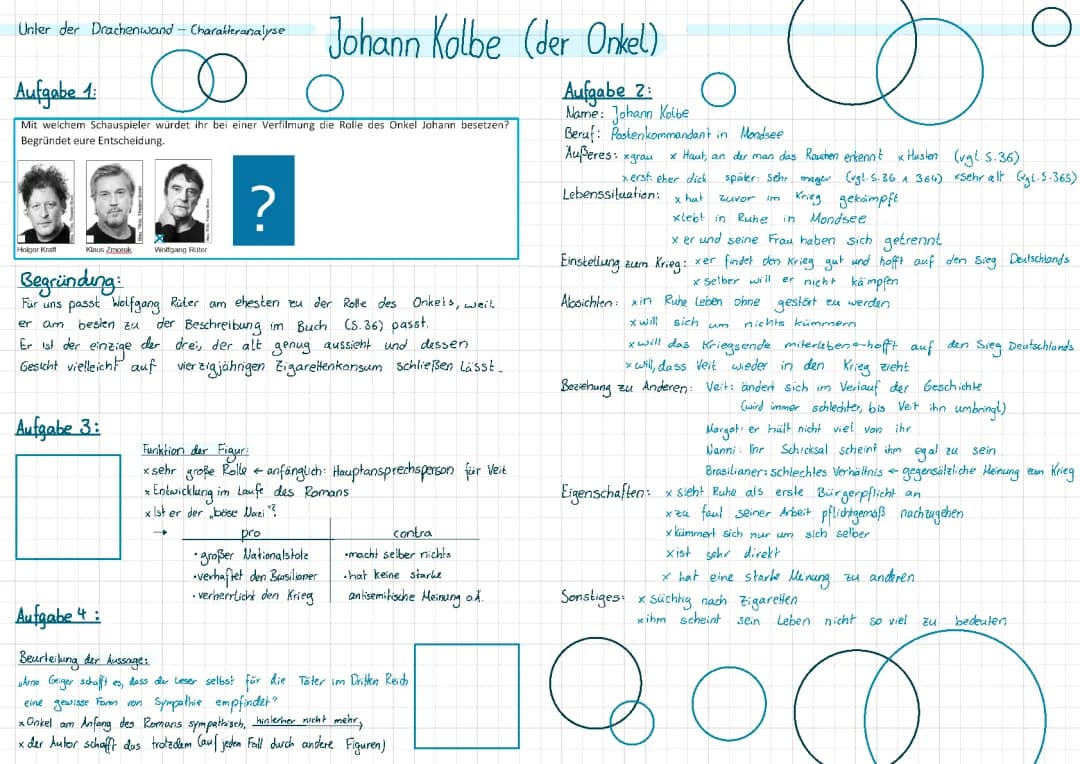 Unter der Drachenwand – Charakteranalyse
Johann Kolbe (der Onkel)
Aufgabe 1:
Mit welchem Schauspieler würdet ihr bei einer Verfilmung die Rolle des Onkel Johann besetzen?
Begründet eure Entscheidung.
?
Holger Kraft
Klaus Zmorek
Wolfgang Rüter
Begründung:
Für uns passt Wolfgang Rüter am ehesten zu der Rolle des Onkels, weil
er am besten zu der Beschreibung im Buch (S.36) passt.
Er ist der einzige der drei, der alt genug aussieht und dessen
Gesicht vielleicht auf vierzigjährigen Zigarettenkonsum schließen lässt.
Aufgabe 3:
Funktion der Figur:
x sehr große Rolle ← anfänglich: Hauptansprechsperson für Veit
x Entwicklung im Laufe des Romans
x Ist er der „böse Nazi“?
→ pro contra
• großer Nationalstolz • macht selber nichts
• verhaftet den Brasilianer • hat keine starke
• verherrlicht den Krieg antisemitische Meinung o.Ä.
Aufgabe 4:
Beurteilung der Aussage:
„Arno Geiger schafft es, dass der Leser selbst für die Täter im Dritten Reich
eine gewisse Form von Sympathie empfindet“
x Onkel am Anfang des Romans sympathisch, hinterher nicht mehr,
x der Autor schafft das trotzdem (auf jeden Fall durch andere Figuren)
Aufgabe 2:
Name: Johann Kolbe
Beruf: Postenkommandant in Mondsee
Äußeres: x grau x Haut, an der man das Rauchen erkennt x Husten (vgl. S.36)
x erst: eher dick später: sehr mager (vgl. S.36 ∧ 364) x sehr alt (vgl. S.365)
Lebenssituation: x hat zuvor im Krieg gekämpft
x lebt in Ruhe in Mondsee
x er und seine Frau haben sich getrennt
Einstellung zum Krieg: x er findet den Krieg gut und hofft auf den Sieg Deutschlands
x selber will er nicht kämpfen
Absichten: x in Ruhe Leben ohne gestört zu werden
x will sich um nichts kümmern
x will das Kriegsende miterleben ← hofft auf den Sieg Deutschlands
x will, dass Veit wieder in den Krieg zieht
Beziehung zu Anderen: Veit: ändert sich im Verlauf der Geschichte
(wird immer schlechter, bis Veit ihn umbringt)
Margot: er hält nicht viel von ihr
Nanni: Ihr Schicksal scheint ihm egal zu sein
Brasilianer: schlechtes Verhältnis ← gegensätzliche Meinung zum Krieg
Eigenschaften: x sieht Ruhe als erste Bürgerpflicht an
x zu faul seiner Arbeit pflichtgemäß nachzugehen
x kümmert sich nur um sich selber
x ist sehr direkt
x hat eine starke Meinung zu anderen
Sonstiges: x süchtig nach Zigaretten
x ihm scheint sein Leben nicht so viel zu bedeuten